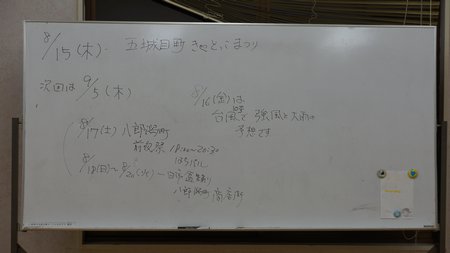 8/15(木)・五城目町 きゃどっこまつり
次回は 9/5(木)
8/16(金)は
台風で 強風と大雨の
予想です
8/17(土) 八郎潟町
前夜祭 18:00~20:30
はちパル
8/18(日)~8/20(火) 一日市盆踊り
八郎潟町 商店街